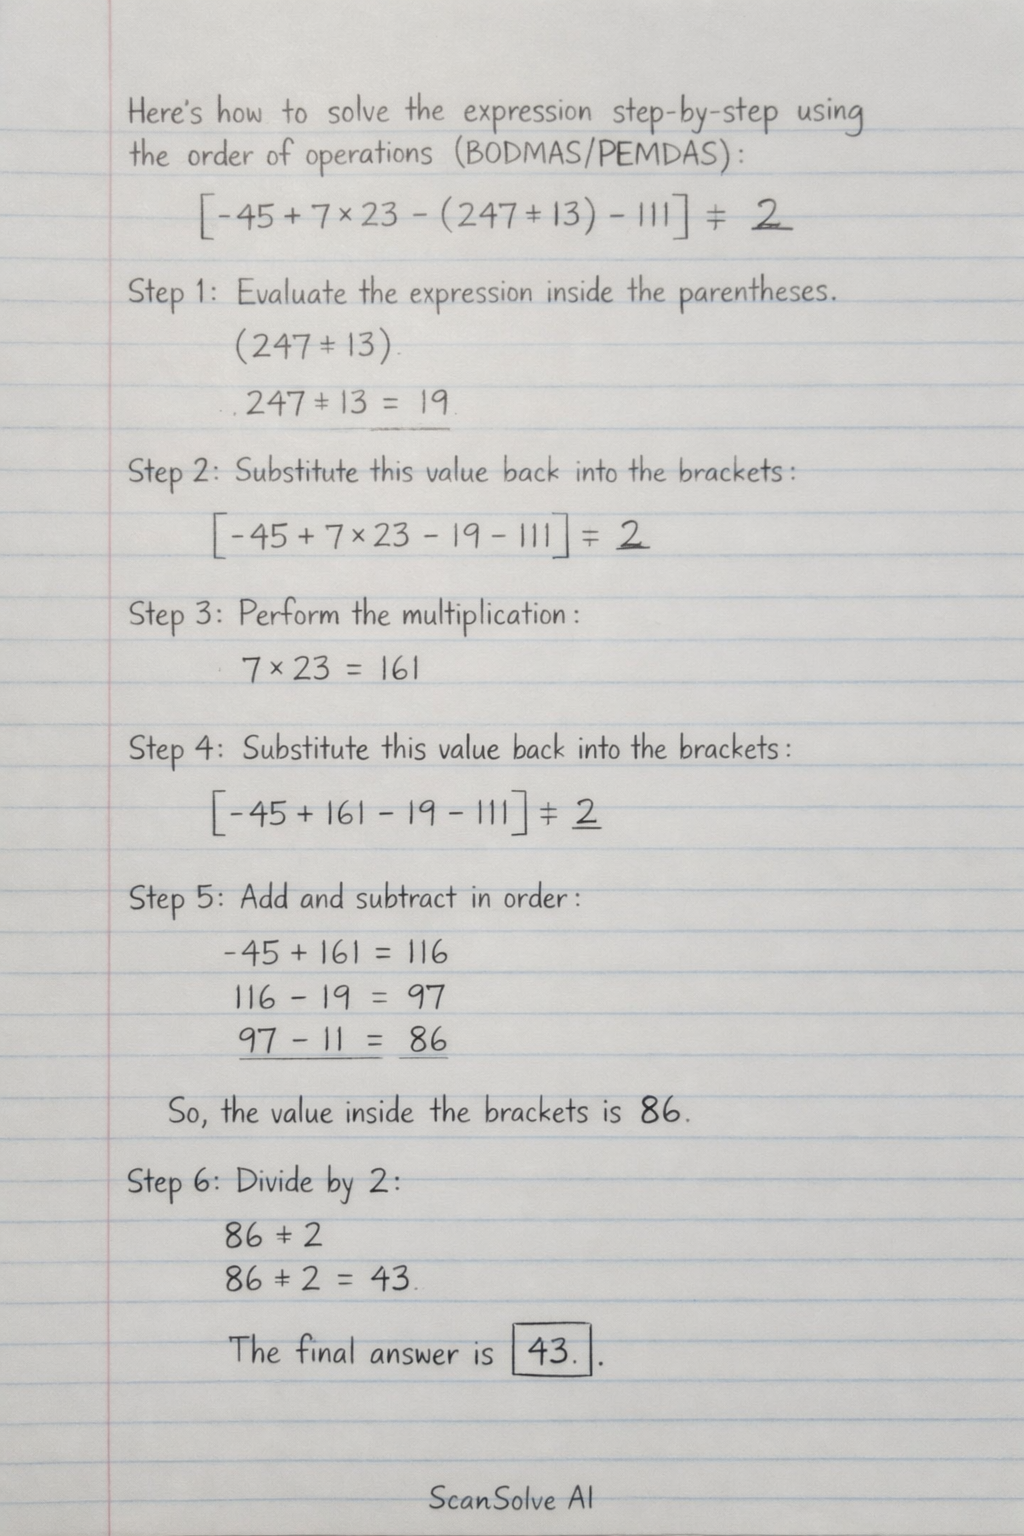 Here's how to solve the expression step-by-step using
the order of operations (BODMAS/PEMDAS):
[-45 + 7 × 23 - (247 ÷ 13) - 111] ÷ 2
Step 1: Evaluate the expression inside the parentheses.
(247 ÷ 13).
247 ÷ 13 = 19
Step 2: Substitute this value back into the brackets:
[-45 + 7 × 23 - 19 - 111] ÷ 2
Step 3: Perform the multiplication:
7 × 23 = 161
Step 4: Substitute this value back into the brackets:
[-45 + 161 - 19 - 111] ÷ 2
Step 5: Add and subtract in order:
-45 + 161 = 116
116 - 19 = 97
97 - 11 = 86
So, the value inside the brackets is 86.
Step 6: Divide by 2:
86 ÷ 2
86 ÷ 2 = 43.
The final answer is 43. .
ScanSolve AI